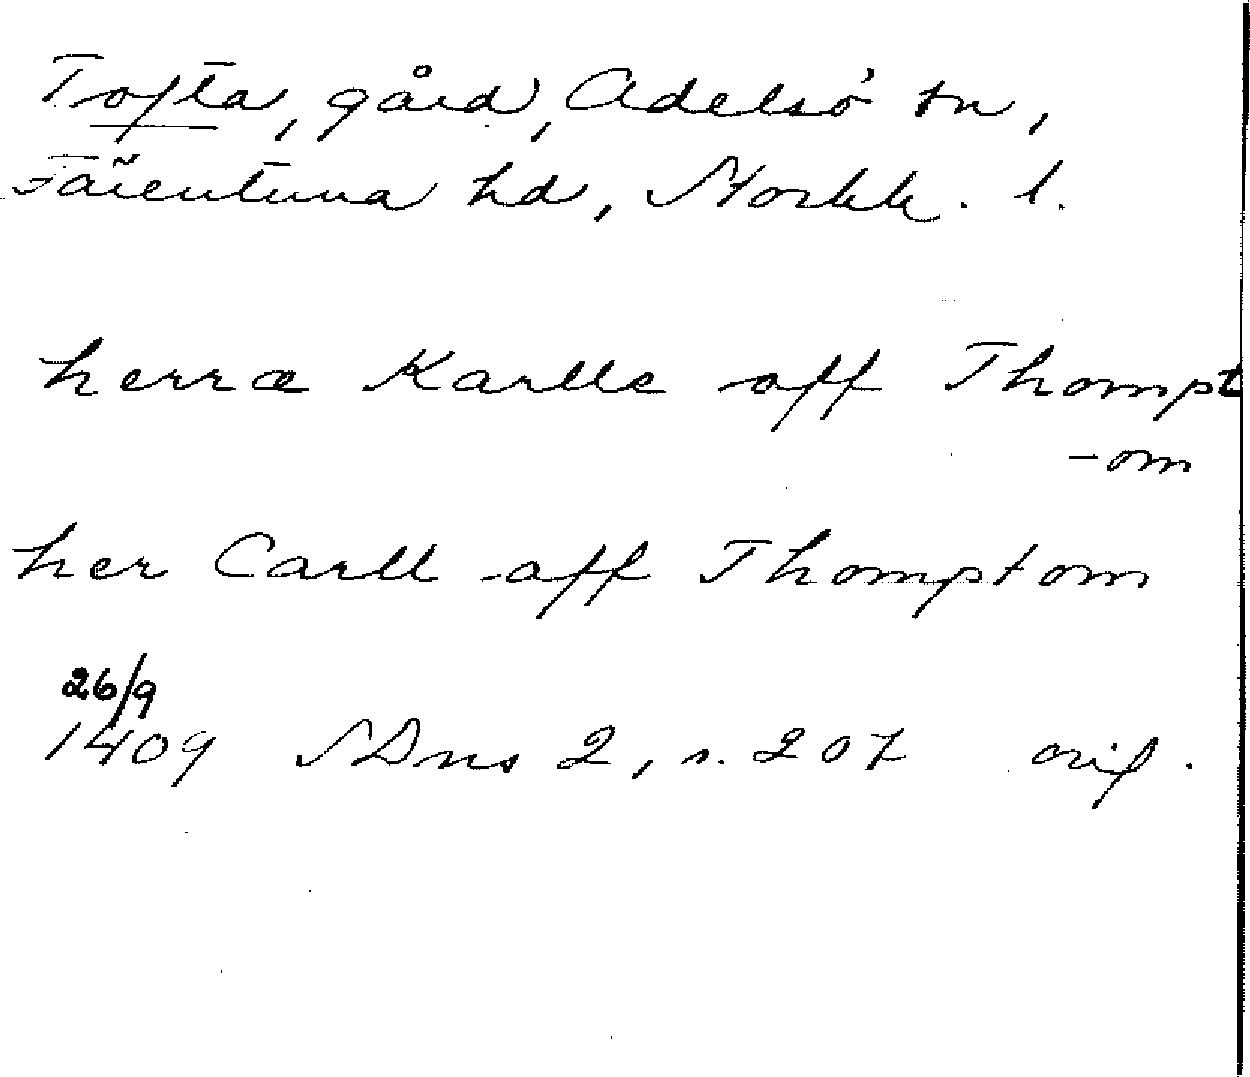 Tofta, gård, Adelsö sn,
Färentuna hd, Stockh. l.
herra Karlle aff Thompt
-om
her Carll aff Thomptom
26/9
1409 SDns 2, s. 207 orig.